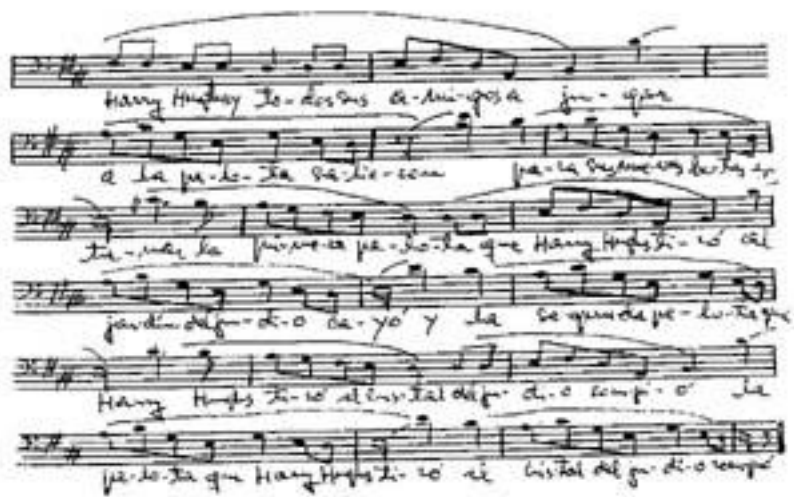 Harry Hughes y to-dos sus a-mi-gos a ju-gar
a la pe-lo-ta sa-lie-ron pa-ra sus nue-vas bo-las es-
tre-nar la pri-me-ra pe-lo-ta que Harry Hughs ti-ró al
jardín del ju-dí-o ca-yó y la se-gunda pe-lo-ta que
Harry Hughs ti-ró el cris-tal del ju-dí-o rompi-ó la
pe-lo-ta que Harry Hughs ti-ró el cristal del ju-dí-o rompió